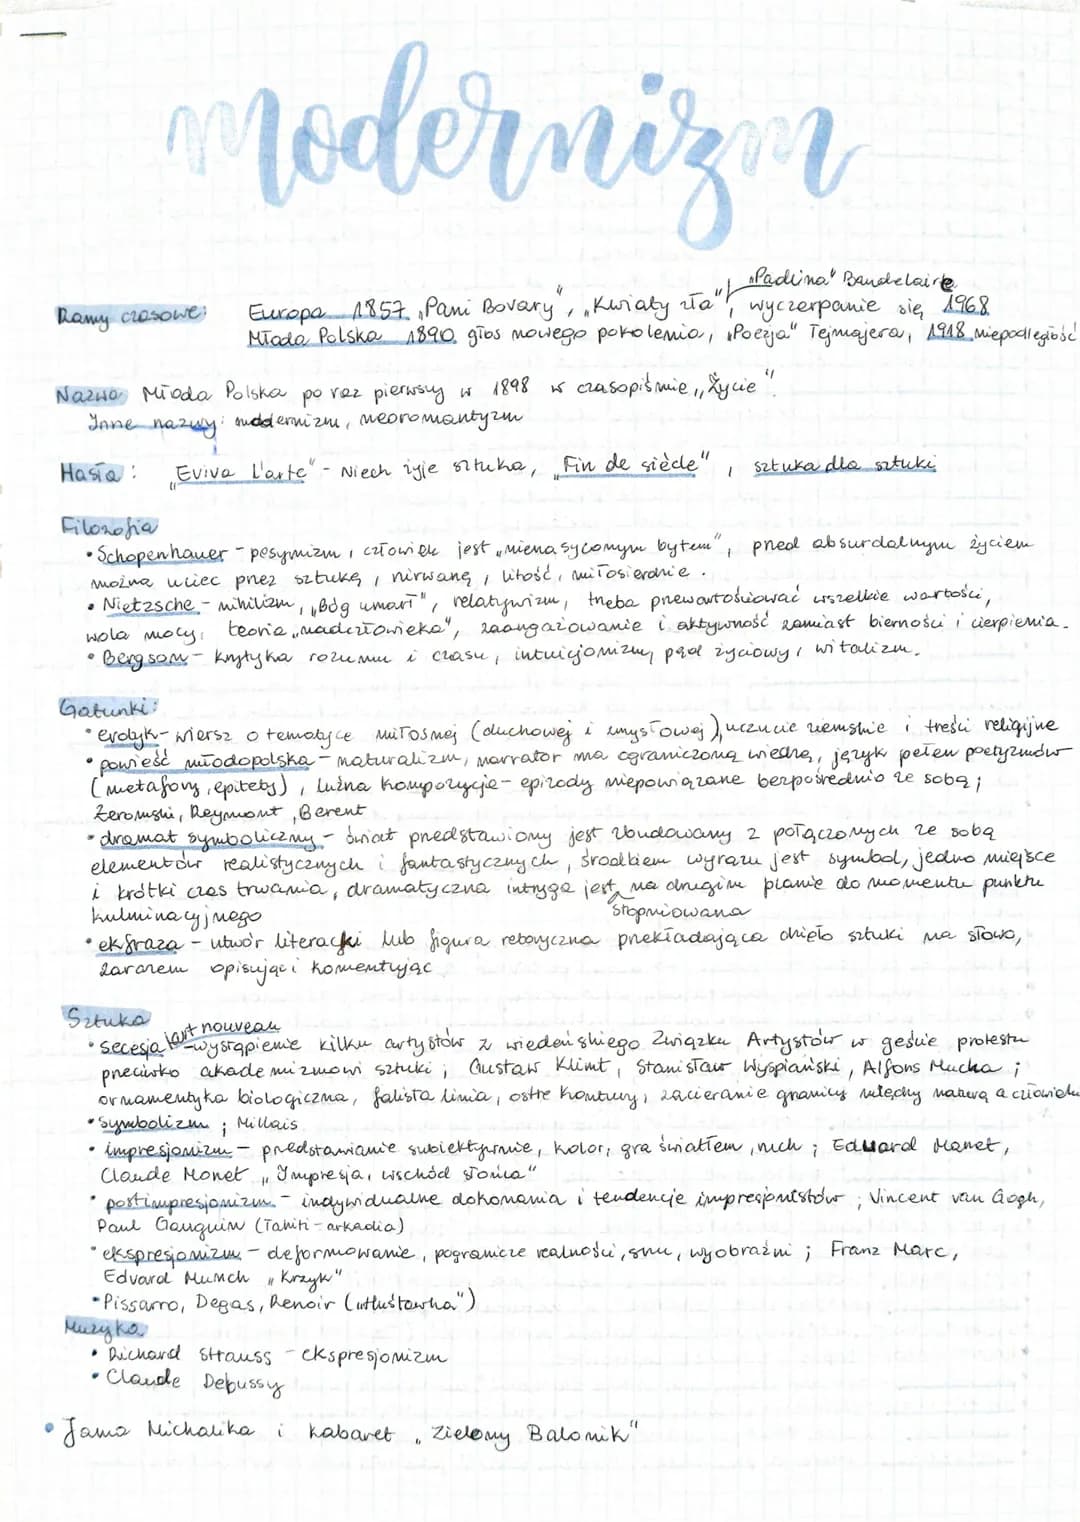 modernizm
„Padlina" Baudelaire
Ramy czasowe: Europa 1857 „Pani Bovary", „Kwiaty zła", wyczerpanie się 1968
Młoda Polska 1890 głos nowego pokolenia, „Poezja" Tejmajera, 1918 niepodległość
Nazwa Młoda Polska po raz pierwszy w 1898 w czasopiśmie „Życie".
Inne nazwy: modernizm, neoromantyzm
Hasła: „Eviva L'arte" - Niech żyje sztuka, „Fin de siècle", sztuka dla sztuki
Filozofia
• Schopenhauer - pesymizm, człowiek jest „nienasyconym bytem", przed absurdalnym życiem
można uciec przez sztukę, nirwanę, litość, miłosierdzie.
• Nietzsche - nihilizm, „Bóg umarł", relatywizm, trzeba przewartościować wszelkie wartości,
wola mocy, teoria „nadczłowieka", zaangażowanie i aktywność zamiast bierności i cierpienia.
• Bergson - krytyka rozumu i czasu, intuicjonizm, pęd życiowy, witalizm.
Gatunki:
• erotyk - wiersz o tematyce miłosnej (duchowej i zmysłowej), uczucie ziemskie i treści religijne
• powieść młodopolska - naturalizm, narrator ma ograniczoną wiedzę, język pełen poetyzmów
(metafory, epitety), luźna kompozycja - epizody niepowiązane bezpośrednio ze sobą;
Żeromski, Reymont, Berent
• dramat symboliczny - świat przedstawiony jest zbudowany z połączonych ze sobą
elementów realistycznych i fantastycznych, środkiem wyrazu jest symbol, jedno miejsce
i krótki czas trwania, dramatyczna intryga jest na drugim planie do momentu punktu
stopniowana
kulminacyjnego
• ekfraza - utwór literacki lub figura retoryczna przekładająca dzieło sztuki na słowo,
zarazem opisując i komentując
Sztuka
art nouveau
• secesja - wystąpienie kilku artystów z wiedeńskiego Związku Artystów w geście protestu
przeciwko akademizmowi sztuki; Gustaw Klimt, Stanisław Wyspiański, Alfons Mucha;
ornamentyka biologiczna, falista linia, ostre kontury, zacieranie granicy między naturą a człowiekiem
• symbolizm; Millais
• impresjonizm - przedstawianie subiektywnie, kolor, gra światłem, ruch; Eduard Manet,
Claude Monet „Impresja, wschód słońca"
• postimpresjonizm - indywidualne dokonania i tendencje impresjonistów; Vincent van Gogh,
Paul Gauguin (Tahiti - arkadia)
• ekspresjonizm - deformowanie, pogranicze realności, snu, wyobraźni; Franz Marc,
Edvard Munch „Krzyk"
• Pissarro, Degas, Renoir („Huśtawka")
Muzyka
• Richard Strauss - ekspresjonizm
• Claude Debussy
• Jama Michalika i kabaret „Zielony Balonik"